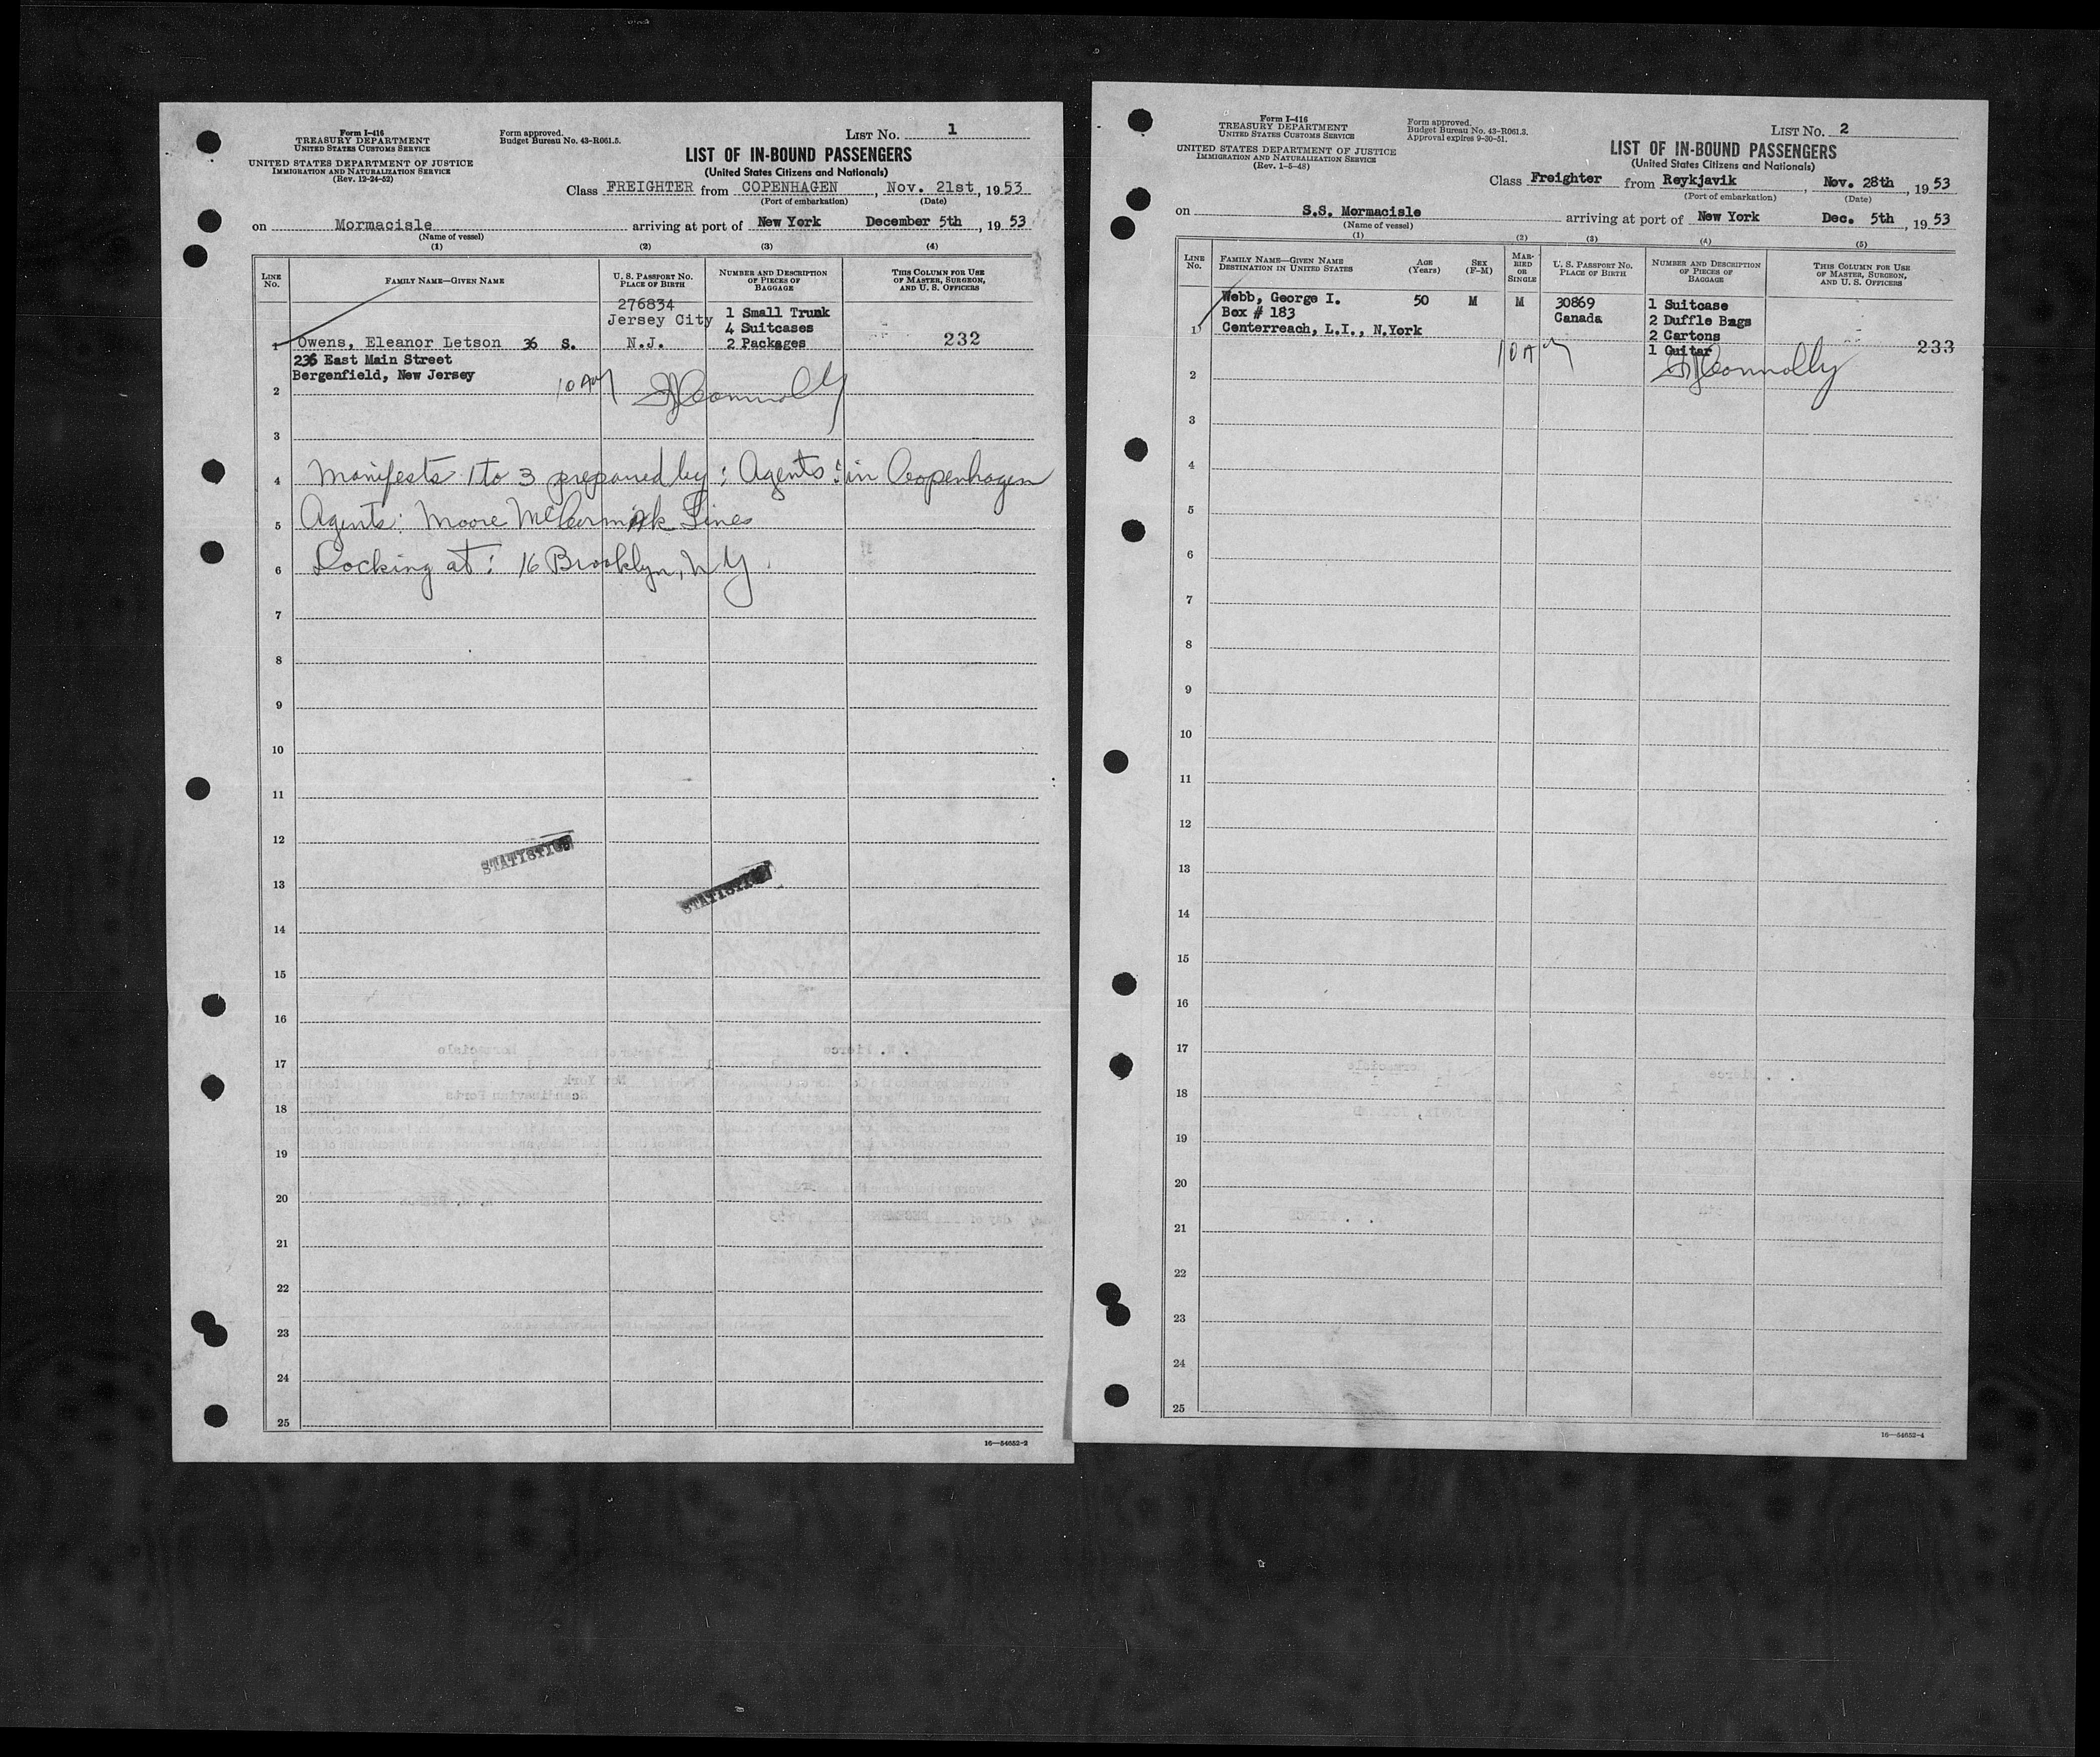 Form I-416
TREASURY DEPARTMENT
UNITED STATES CUSTOMS SERVICE
UNITED STATES DEPARTMENT OF JUSTICE
IMMIGRATION AND NATURALIZATION SERVICE
(Rev. 12-24-52)
Form approved.
Budget Bureau No. 43-R061.5.
LIST No. 1
LIST OF IN-BOUND PASSENGERS
(United States Citizens and Nationals)
Class FREIGHTER from COPENHAGEN, Nov. 21st, 1953
(Port of embarkation) (Date)
on Mormacisle arriving at port of New York December 5th, 1953
(Name of vessel)
(1) (2) (3) (4)
LINE No. FAMILY NAME—GIVEN NAME U. S. PASSPORT No. PLACE OF BIRTH NUMBER AND DESCRIPTION OF PIECES OF BAGGAGE THIS COLUMN FOR USE OF MASTER, SURGEON, AND U. S. OFFICERS
276834
Jersey City 1 Small Trunk
4 Suitcases
1 Owens, Eleanor Letson 36 S. N.J. 2 Packages 232
236 East Main Street
Bergenfield, New Jersey
2 10 AM Connolly
3
4 Manifests 1 to 3 prepared by: Agents: in Copenhagen
5 Agents: Moore McCormack Lines
6 Docking at: 16 Brooklyn, NY.
7
8
9
10
11
12
STATISTICS
13
STATISTICS
14
15
16
17
18
19
20
21
22
23
24
25
16—54652-2
Form I-416
TREASURY DEPARTMENT
UNITED STATES CUSTOMS SERVICE
UNITED STATES DEPARTMENT OF JUSTICE
IMMIGRATION AND NATURALIZATION SERVICE
(Rev. 1-5-48)
Form approved.
Budget Bureau No. 43-R061.3.
Approval expires 9-30-51.
LIST No. 2
LIST OF IN-BOUND PASSENGERS
(United States Citizens and Nationals)
Class Freighter from Reykjavik, Nov. 28th, 1953
(Port of embarkation) (Date)
on S.S. Mormacisle arriving at port of New York Dec. 5th, 1953
(Name of vessel)
(1) (2) (3) (4) (5)
LINE No. FAMILY NAME—GIVEN NAME DESTINATION IN UNITED STATES AGE (Years) SEX (F-M) MARRIED OR SINGLE U. S. PASSPORT No. PLACE OF BIRTH NUMBER AND DESCRIPTION OF PIECES OF BAGGAGE THIS COLUMN FOR USE OF MASTER, SURGEON, AND U. S. OFFICERS
Webb, George I. 50 M M 30869 1 Suitcase
Box # 183 Canada 2 Duffle Bags
1 Centerreach, L.I., N.York 2 Cartons
1 Guitar 233
2 10 AM Connolly
3
4
5
6
7
8
9
10
11
12
13
14
15
16
17
18
19
20
21
22
23
24
25
16—54652-4